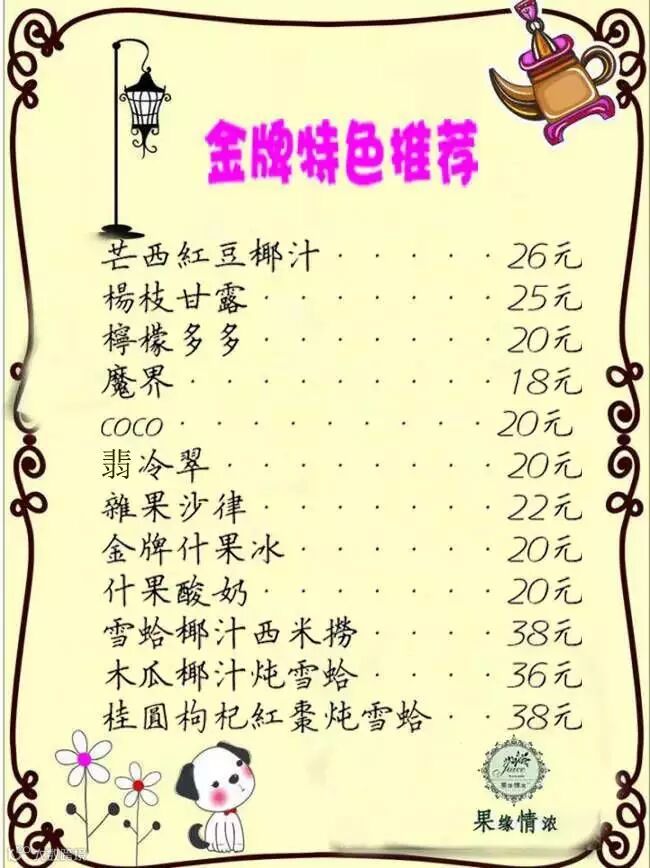 金牌特色推荐
芒西紅豆椰汁 · · · · · 26元
楊枝甘露 · · · · · · · 25元
檸檬多多 · · · · · · · 20元
魔界 · · · · · · · · · 18元
coco · · · · · · · · 20元
翡冷翠 · · · · · · · · 20元
雜果沙律 · · · · · · · 22元
金牌什果冰 · · · · · · 20元
什果酸奶 · · · · · · · 20元
雪蛤椰汁西米撈 · · · · 38元
木瓜椰汁炖雪蛤 · · · · 36元
桂圓枸杞紅棗炖雪蛤 · · 38元
Juice
果缘情浓
果缘情浓